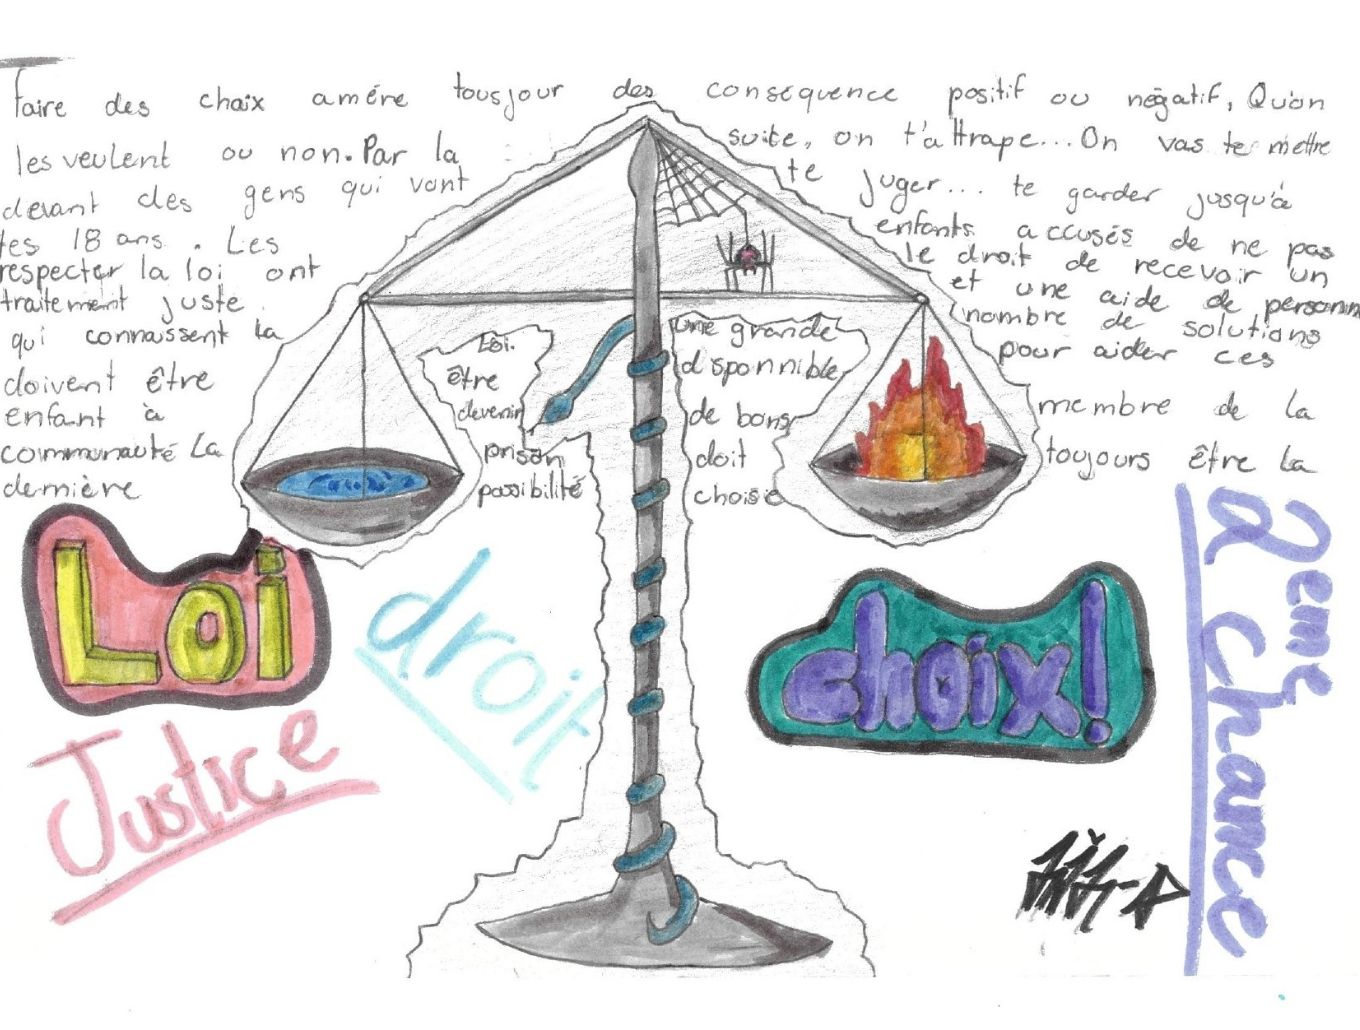 Faire des choix amére tousjour des conséquence positif ou négatif, Qu'on
les veulent ou non. Par la suite, on t'attrape... On vas te mettre
devant des gens qui vont te juger... te garder jusqu'à
tes 18 ans. Les enfants accusés de ne pas
respecter la loi ont le droit de recevoir un
traitement juste et une aide de personne
qui connaissent la Loi. une grande nombre de solutions
doivent être être disponnible pour aider ces
enfant à devenir de bons membre de la
communauté La prison doit toujours être la
dernière possibilité choisie
Loi
droit
choix!
2eme chance
Justice